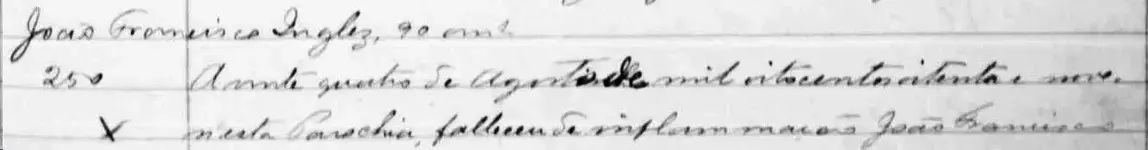 João Francisco Inglez, 90 ann.ˢ
250 A vinte quatro de Agosto de mil oitocentos oitenta e nove,
X nesta Parochia, falleceu de inflammação João Francisco